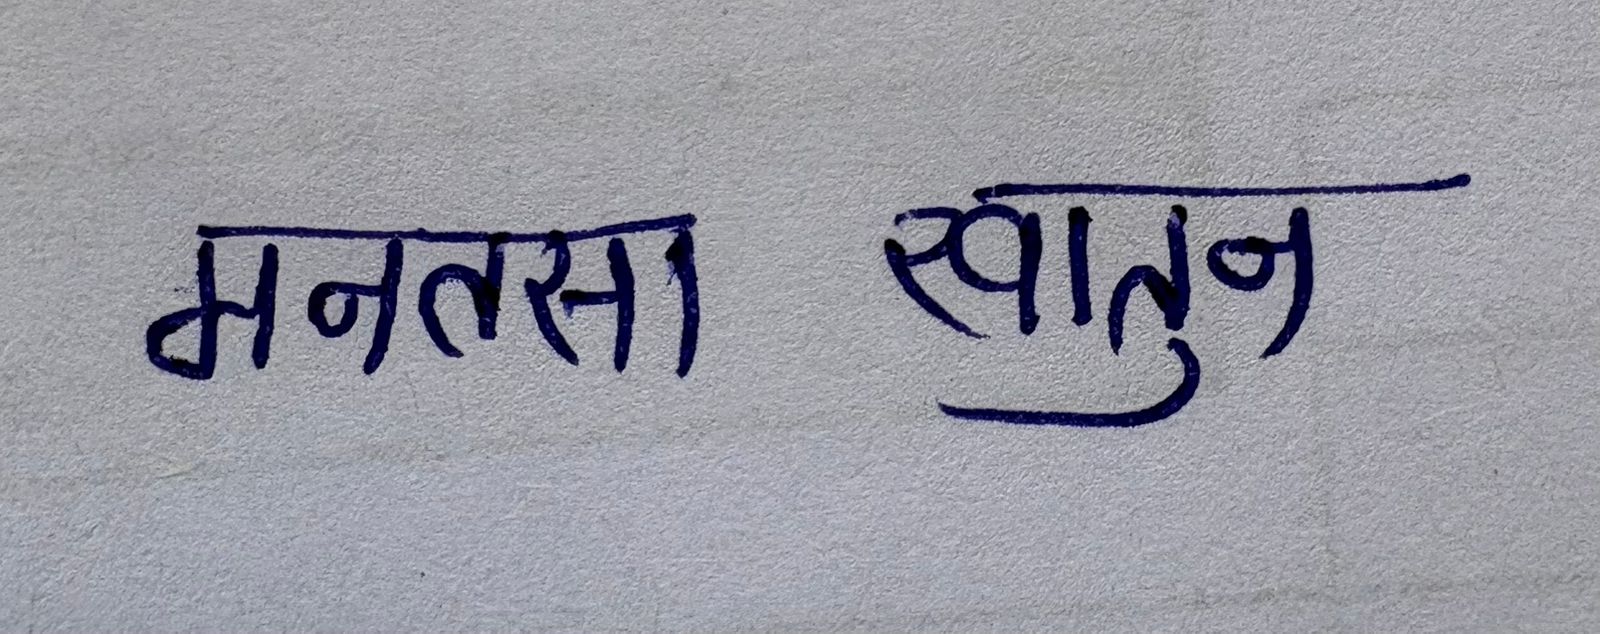 मनतसा खातुन